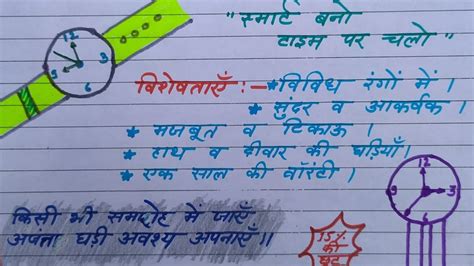 "स्मार्ट बनो
टाइम पर चलो"
विशेषताएँ :- * विविध रंगों में।
* सुंदर व आकर्षक।
* मजबूत व टिकाऊ।
* हाथ व दीवार की घड़ियाँ।
* एक साल की वॉरंटी।
किसी भी समारोह में जाएँ
अपना घड़ी अवश्य अपनाएँ॥
15% की छूट
12
3
6
9
12
3
6
9